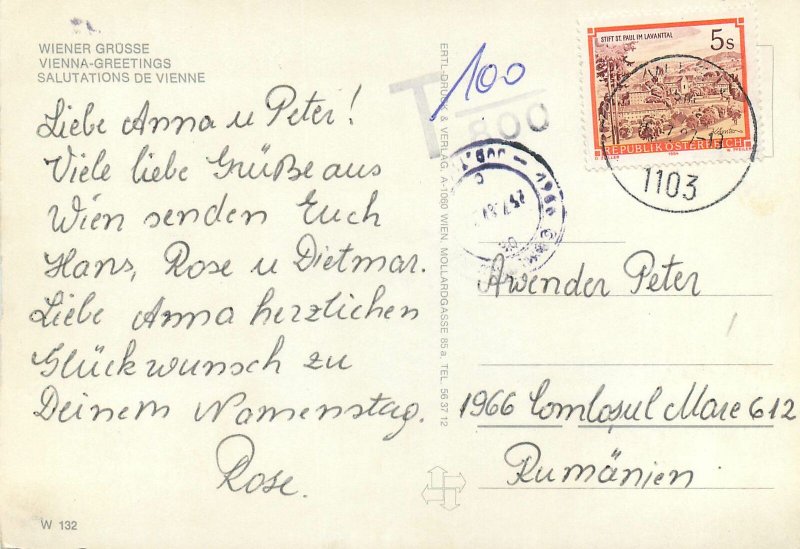 WIENER GRÜSSE
VIENNA-GREETINGS
SALUTATIONS DE VIENNE
Liebe Anna u Peter!
Viele liebe Grüße aus
Wien senden Euch
Hans, Rose u Dietmar.
Liebe Anna herzlichen
Glückwunsch zu
Deinem Namenstag.
Rose.
W 132
ERTL-DRU & VERLAG, A-1060 WIEN, MOLLARDGASSE 85a, TEL. 56 37 12
T 100
800
STIFT ST. PAUL IM LAVANTTAL
5s
REPUBLIK ÖSTERREICH
1103
1966
Awender Peter
1966 Comloșul Mare 612
Rumänien